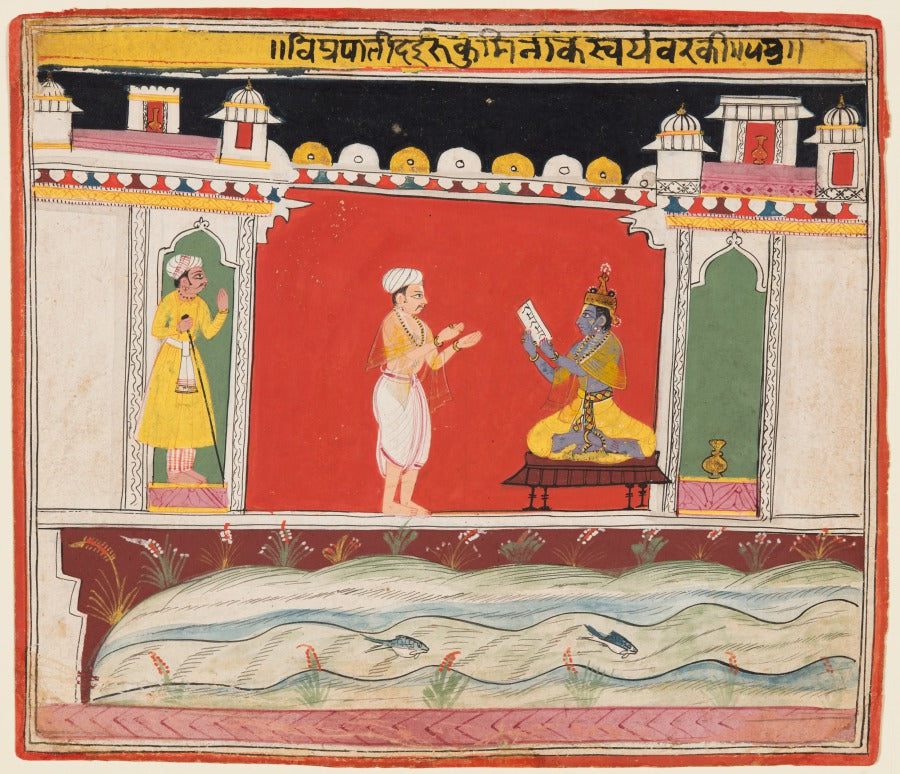 ॥विप्रपातीदईरुकुमिनाकस्वयंवरकी